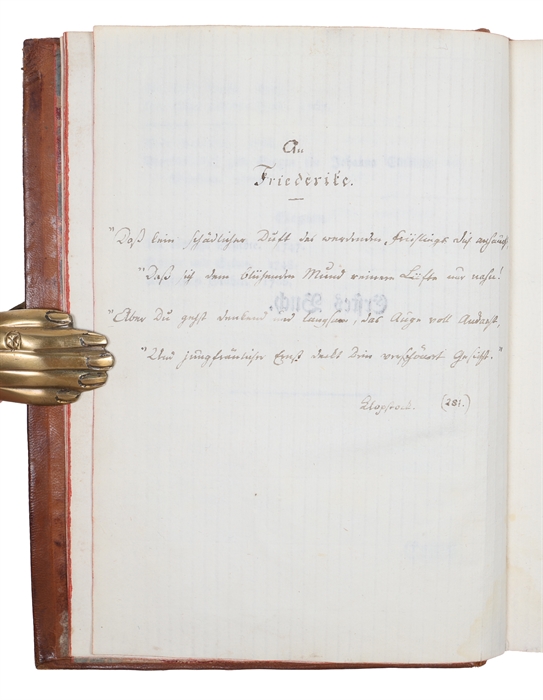 An
Friederike.
"Daß kein schädlicher Duft des werdenden Frühlings Dich anhauch
"Daß sich dem blühenden Mund reinere Lüfte nur nahn!
"Aber Du gehst denkend und langsam, das Auge voll Andacht,
"Und jungfräulicher Ernst deckt Dein verschönert Gesicht."
Klopstock. (281.)